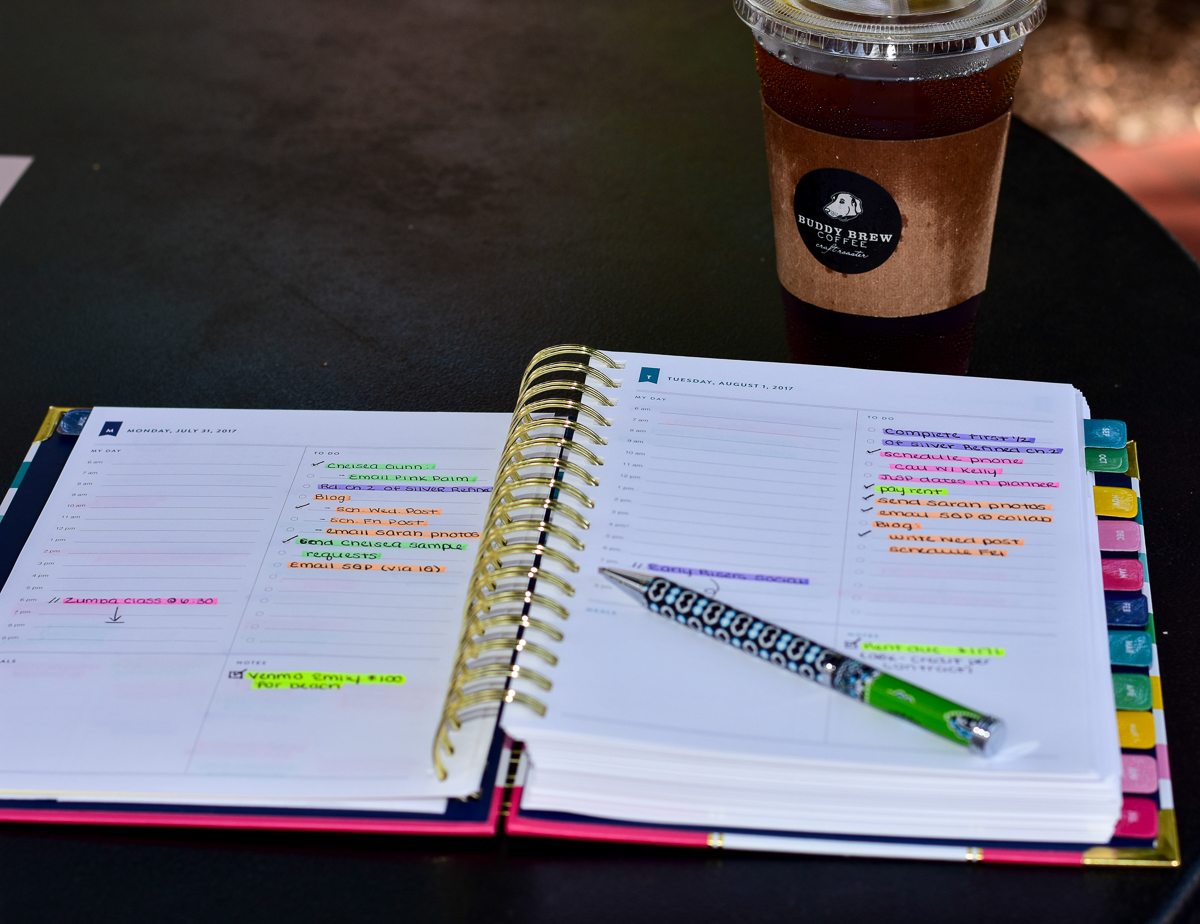 BUDDY BREW
COFFEE
craft roaster
M
MONDAY, JULY 31, 2017
MY DAY
6 am
7 am
8 am
9 am
10 am
11 am
12 pm
1 pm
2 pm
3 pm
4 pm
5 pm
6 pm
// Zumba class @ 6:30
7 pm
8 pm
9 pm
TO DO
Chelsea Gunn:
- Email Pink Palm
Rd Ch 2 of Silver
Blog
- Sch. Wed. Post
- Sch. Fri Post
- email Sarah photos
Send Chelsea sample
requests
Email S&P (via IG)
NOTES
Venmo Emily $100
for beach
T
TUESDAY, AUGUST 1, 2017
MY DAY
6 am
7 am
8 am
9 am
10 am
11 am
12 pm
1 pm
2 pm
3 pm
4 pm
5 pm
6 pm
7 pm
// Early Risers Social
MEALS
TO DO
Complete First 1/2
of Silver Refined Ch 2
schedule phone
call w/ Kelly
dates in planner
pay rent
send sarah photos
email S&P @ collab
Blog:
write Wed post
schedule Fri
NOTES
Rent due
credit per
contract)
SEP
OCT
DEC